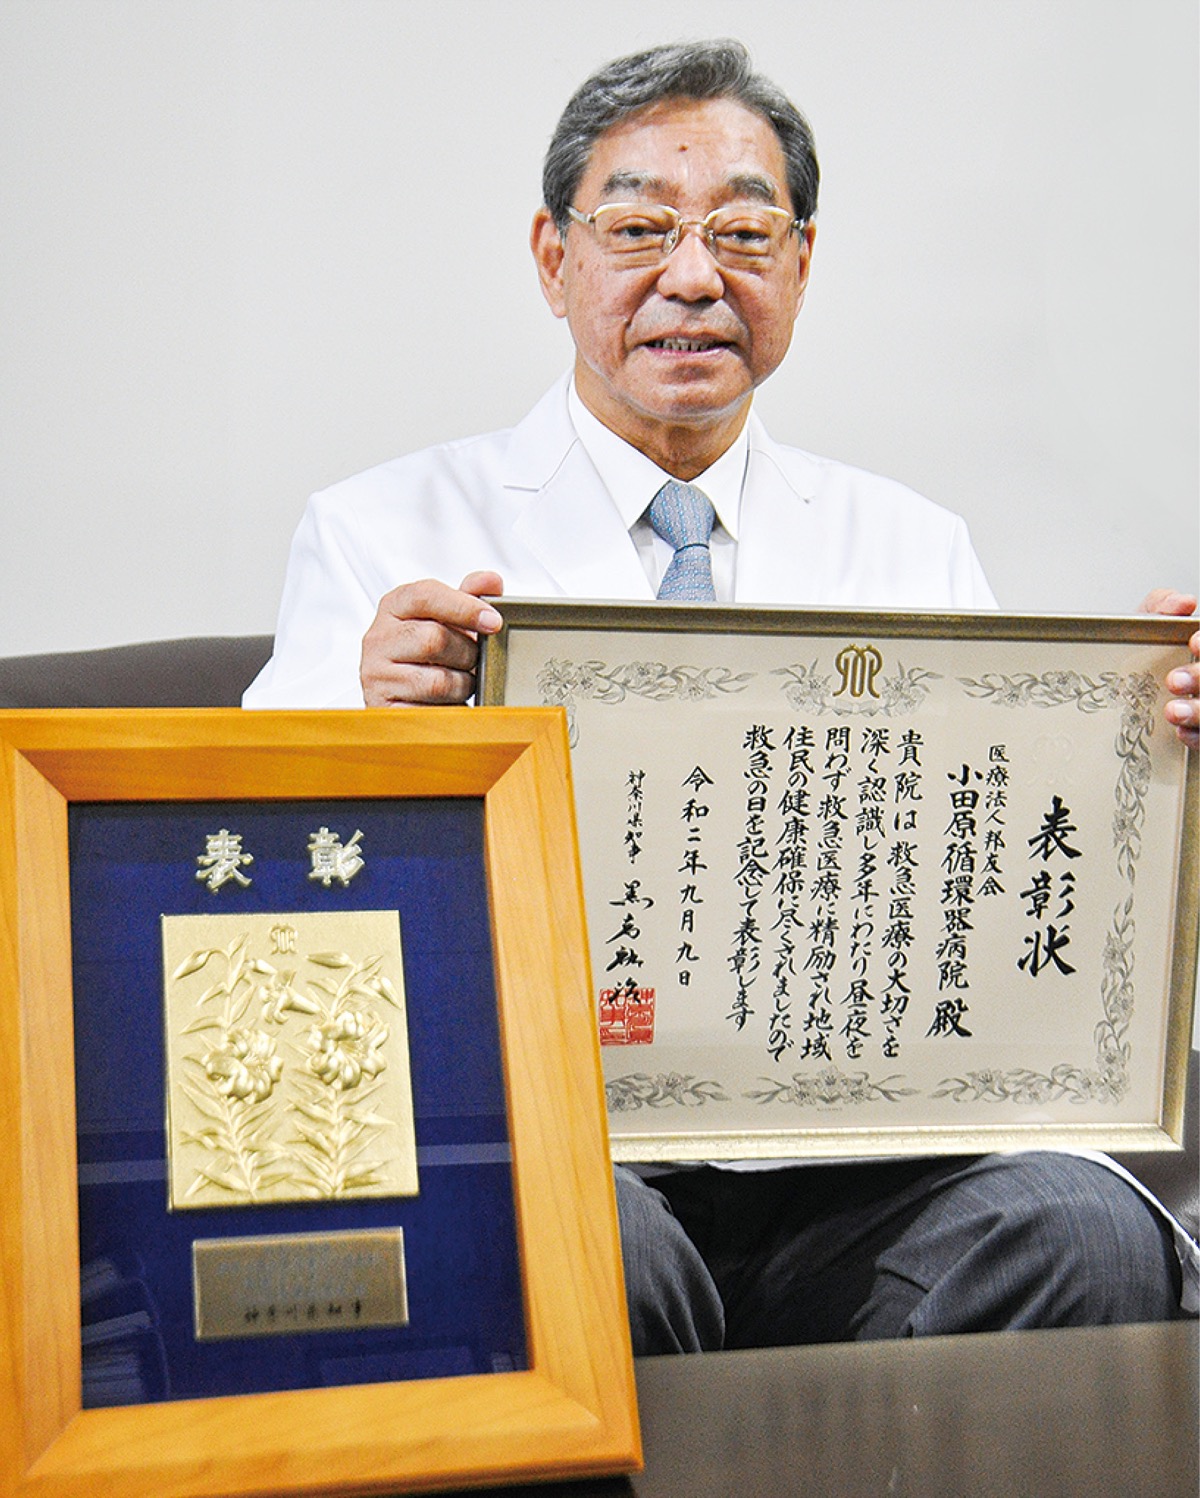 表彰状
医療法人邦友会
小田原循環器病院 殿
貴院は救急医療の大切さを
深く認識し多年にわたり昼夜を
問わず救急医療に精励され地域
住民の健康確保に尽くされましたので
救急の日を記念して表彰します
令和二年九月九日
神奈川県知事 黒岩祐治
表彰
神奈川県知事